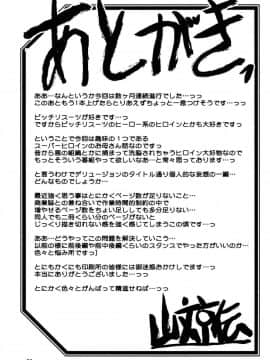 あとがき
ああ…なんというか今回は数ヶ月連続進行でした…っっ
このあともう1本上げたらとりあえずちょっと一息つけそうです…っっ
ピッチリスーツが好きです…
ですからピッチリスーツのヒーロー系のヒロインとかも大好きです…っ
ということで今回は趣味の1つである
スーパーヒロインのお母さん物なのです…っ
昔から悪の組織とかに捕まって洗脳されちゃうヒロイン大好物なので
もっとそういう番組やって欲しいなあ…と常々思っております…っ
と言うわけでデリュージョンのタイトル通り個人的な妄想の一編…
どんなものでしょうか…
最近強く思う事はとにかくページ数が足りないこと…
商業誌との兼ね合いで作業時間的制約の中で
増やせるページ数をちょい足ししても中々足らない…っ
同人でも二冊くらい分のページがないと
じっくり描き切れない感を強く感じてしまうこの頃です…っ
ああ…どうやってこの問題を解決していこう…
以前の様に前後編や前中後編くらいのスタンスでやった方がいいのか…
色々と悩み所です…っ
ともかくにも印刷所の皆様には御迷惑おかけしてます…っ
本当にありがとうございました…っっ
とにかく色々とがんばって精進せねば…っ